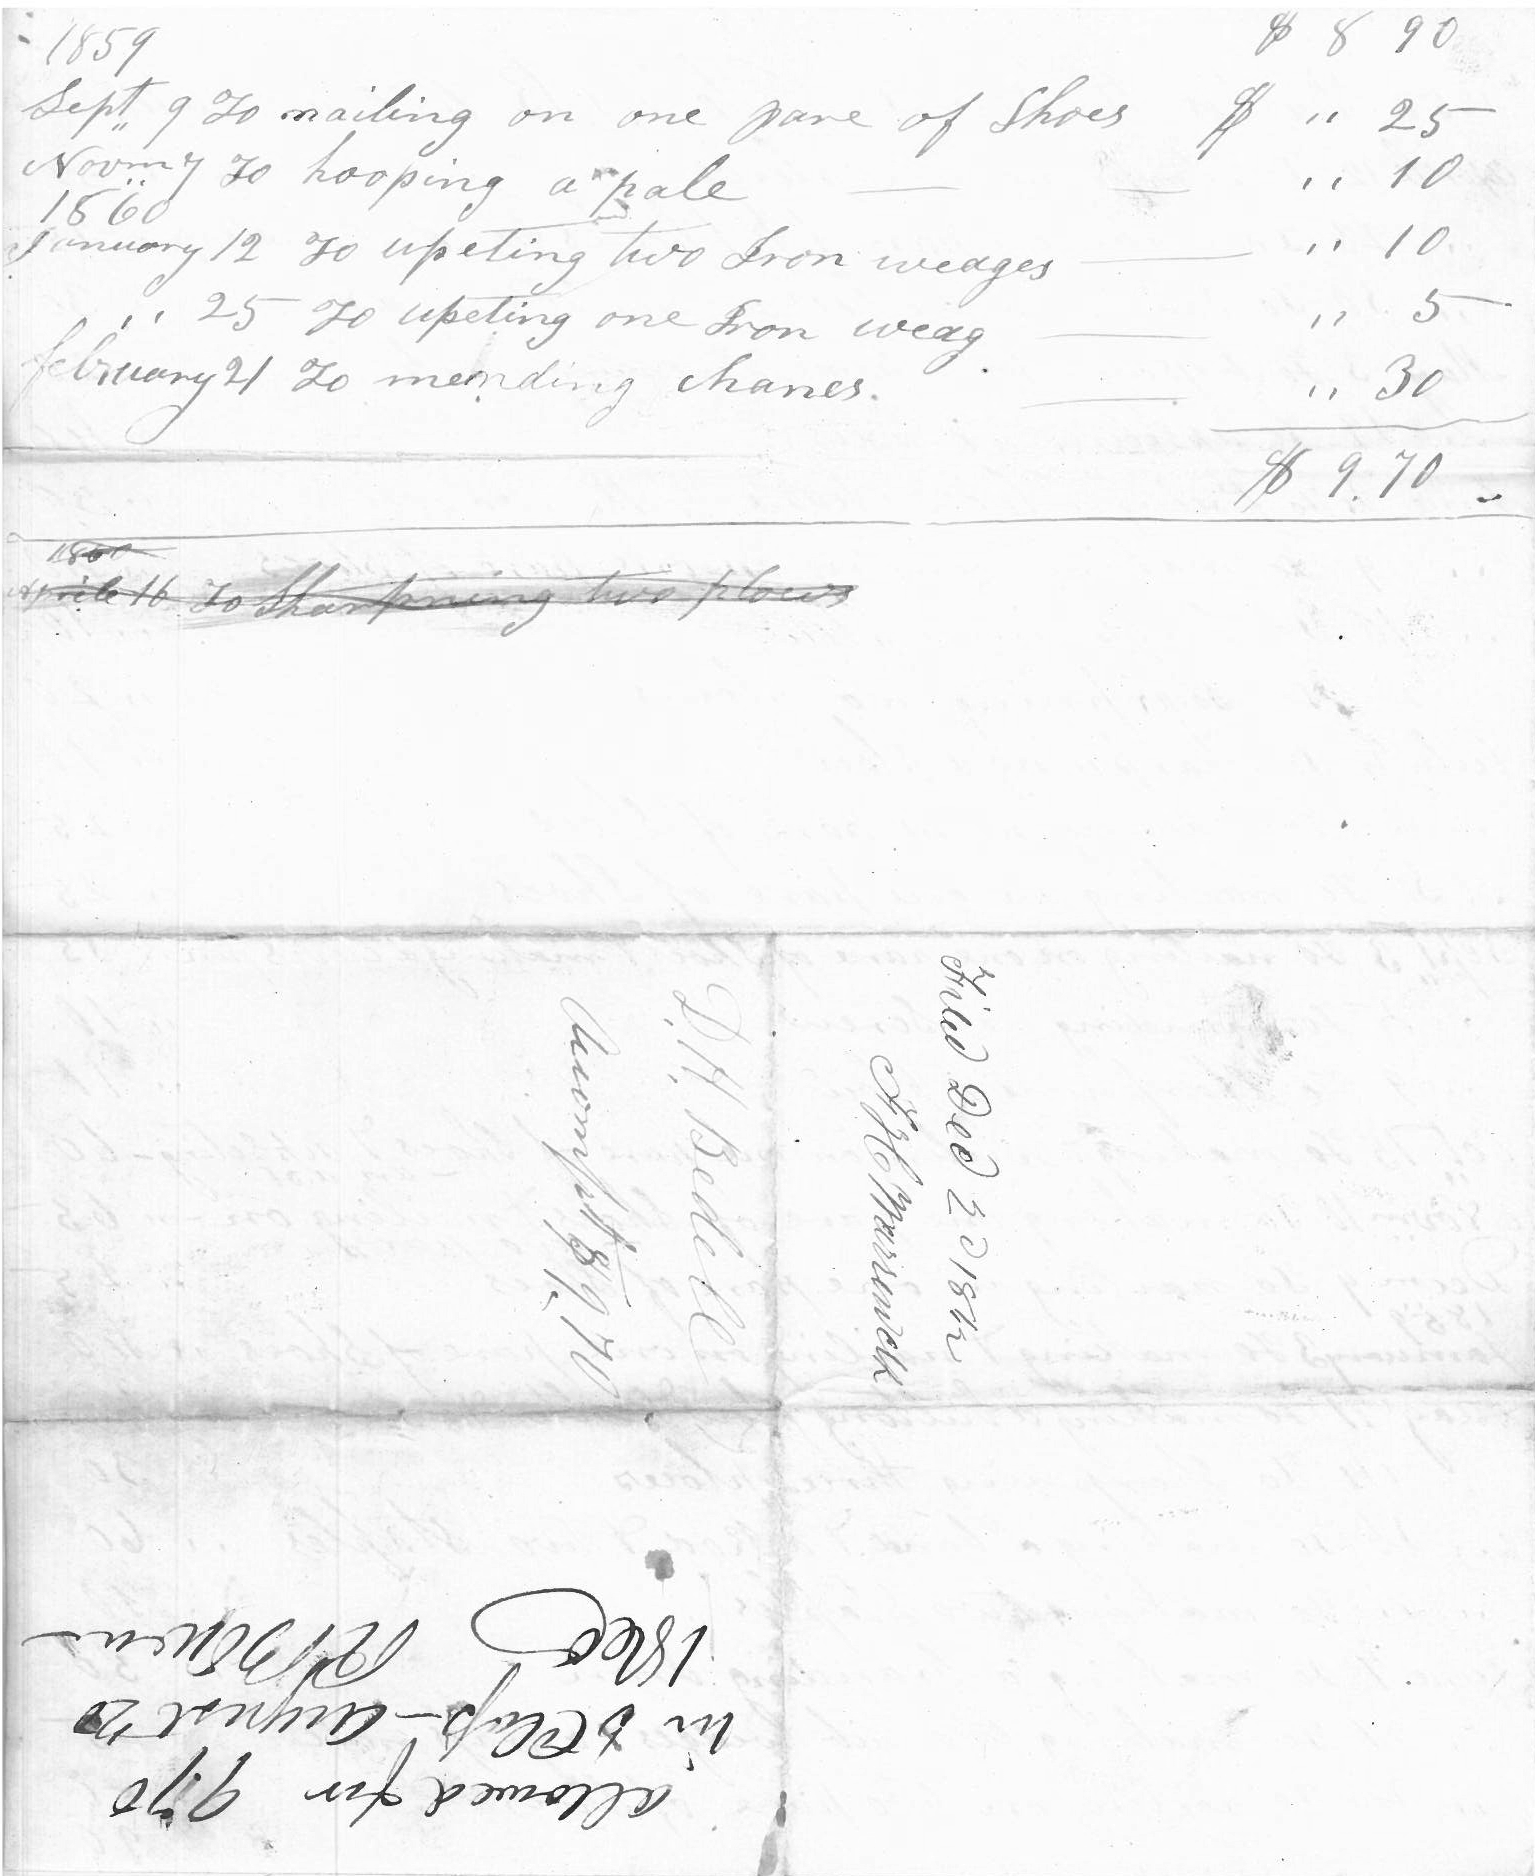 1859 $ 8 90
Sept 9 To nailing on one pare of Shoes $ " 25
Novm 7 To hooping a pale — — " 10
1860
January 12 To upeting two Iron wedges — " 10
" 25 To upeting one Iron weag — " 5
february 21 To mending chanes. — " 30
$ 9.70
1860
Aprile 16 To Sharpning two plows
Filed Dec 22d 18
D. H. Bedell
$9.70
allowed for 9.70
in 5 Clas - August 20
1860